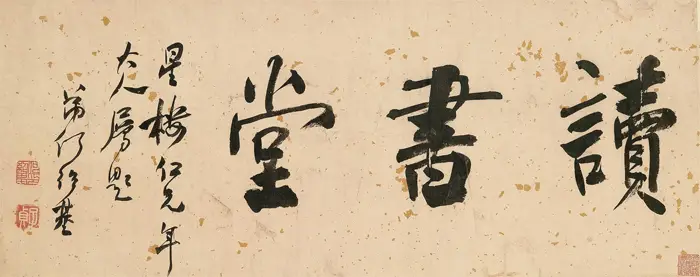 讀書堂
星楼仁兄年
大人属題
弟何紹基